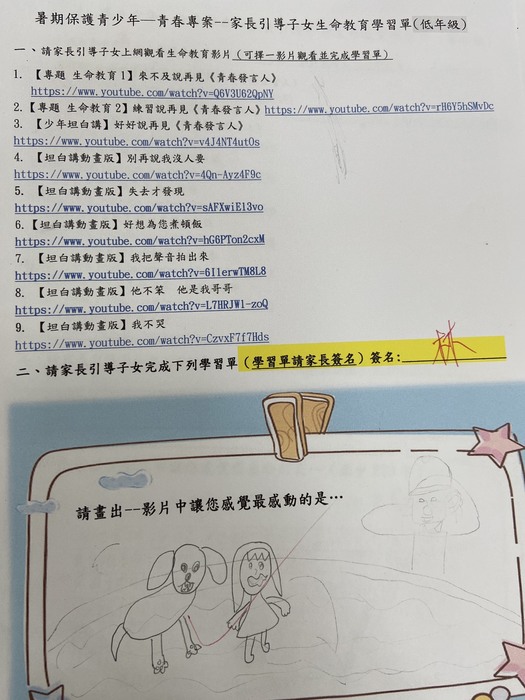 暑期保護青少年—青春專案--家長引導子女生命教育學習單(低年級)
一、請家長引導子女上網觀看生命教育影片(可擇一影片觀看並完成學習單)
1. 【專題 生命教育1】來不及說再見《青春發言人》
https://www.youtube.com/watch?v=Q6V3U62QpNY
2.【專題 生命教育2】練習說再見《青春發言人》https://www.youtube.com/watch?v=rH6Y5hSMvDc
3. 【少年坦白講】好好說再見《青春發言人》
https://www.youtube.com/watch?v=v4J4NT4utOs
4. 【坦白講動畫版】別再說我沒人要
https://www.youtube.com/watch?v=4Qn-Ayz4F9c
5. 【坦白講動畫版】失去才發現
https://www.youtube.com/watch?v=sAFXwiE13vo
6.【坦白講動畫版】好想為您煮頓飯
https://www.youtube.com/watch?v=hG6PTon2cxM
7. 【坦白講動畫版】我把聲音拍出來
https://www.youtube.com/watch?v=6IlerwTM8L8
8. 【坦白講動畫版】他不笨 他是我哥哥
https://www.youtube.com/watch?v=L7HRJW1-zoQ
9. 【坦白講動畫版】我不哭
https://www.youtube.com/watch?v=CzvxF7f7Hds
二、請家長引導子女完成下列學習單(學習單請家長簽名)簽名:林
請畫出--影片中讓您感覺最感動的是…